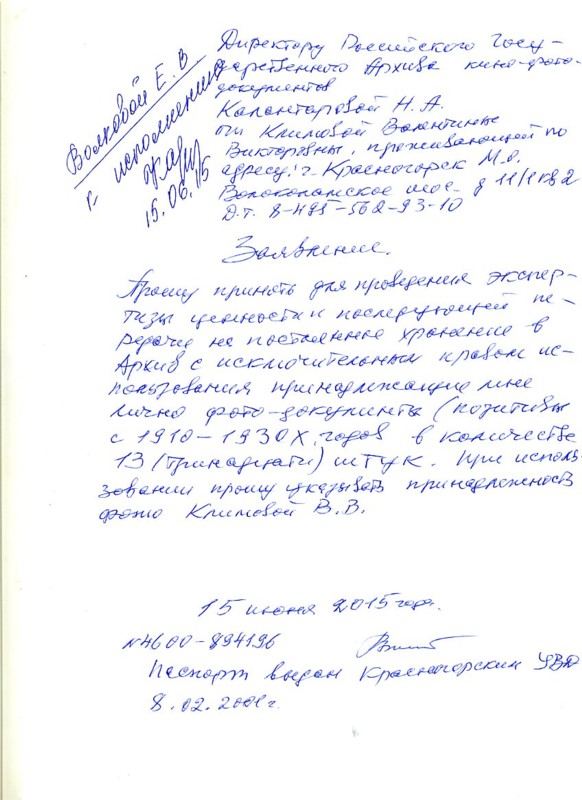 Волковой Е.В
к исполнению
15.06.15
Директору Российского Госу-
дарственного Архива кино-фото-
документов
Калантаровой Н.А.
от Климовой Валентины
Викторовны, проживающей по
адресу: г. Красногорск М.О.
Волоколамское шос. д 11/1 кв 2
Д.т. 8-495-562-93-10
Заявление.
Прошу принять для проведения экспер-
тизы ценности и последующей пе-
редачи на постоянное хранение в
Архив с исключительным правом ис-
пользования принадлежащие мне
лично фото-документы (позитивы
с 1910-1930х годов в количестве
13 (тринадцати) штук. При исполь-
зовании прошу указывать принадлежность
фото Климовой В.В.
15 июня 2015 года.
№4600-894196
Паспорт выдан Красногорским УВД
8.02.2001г.